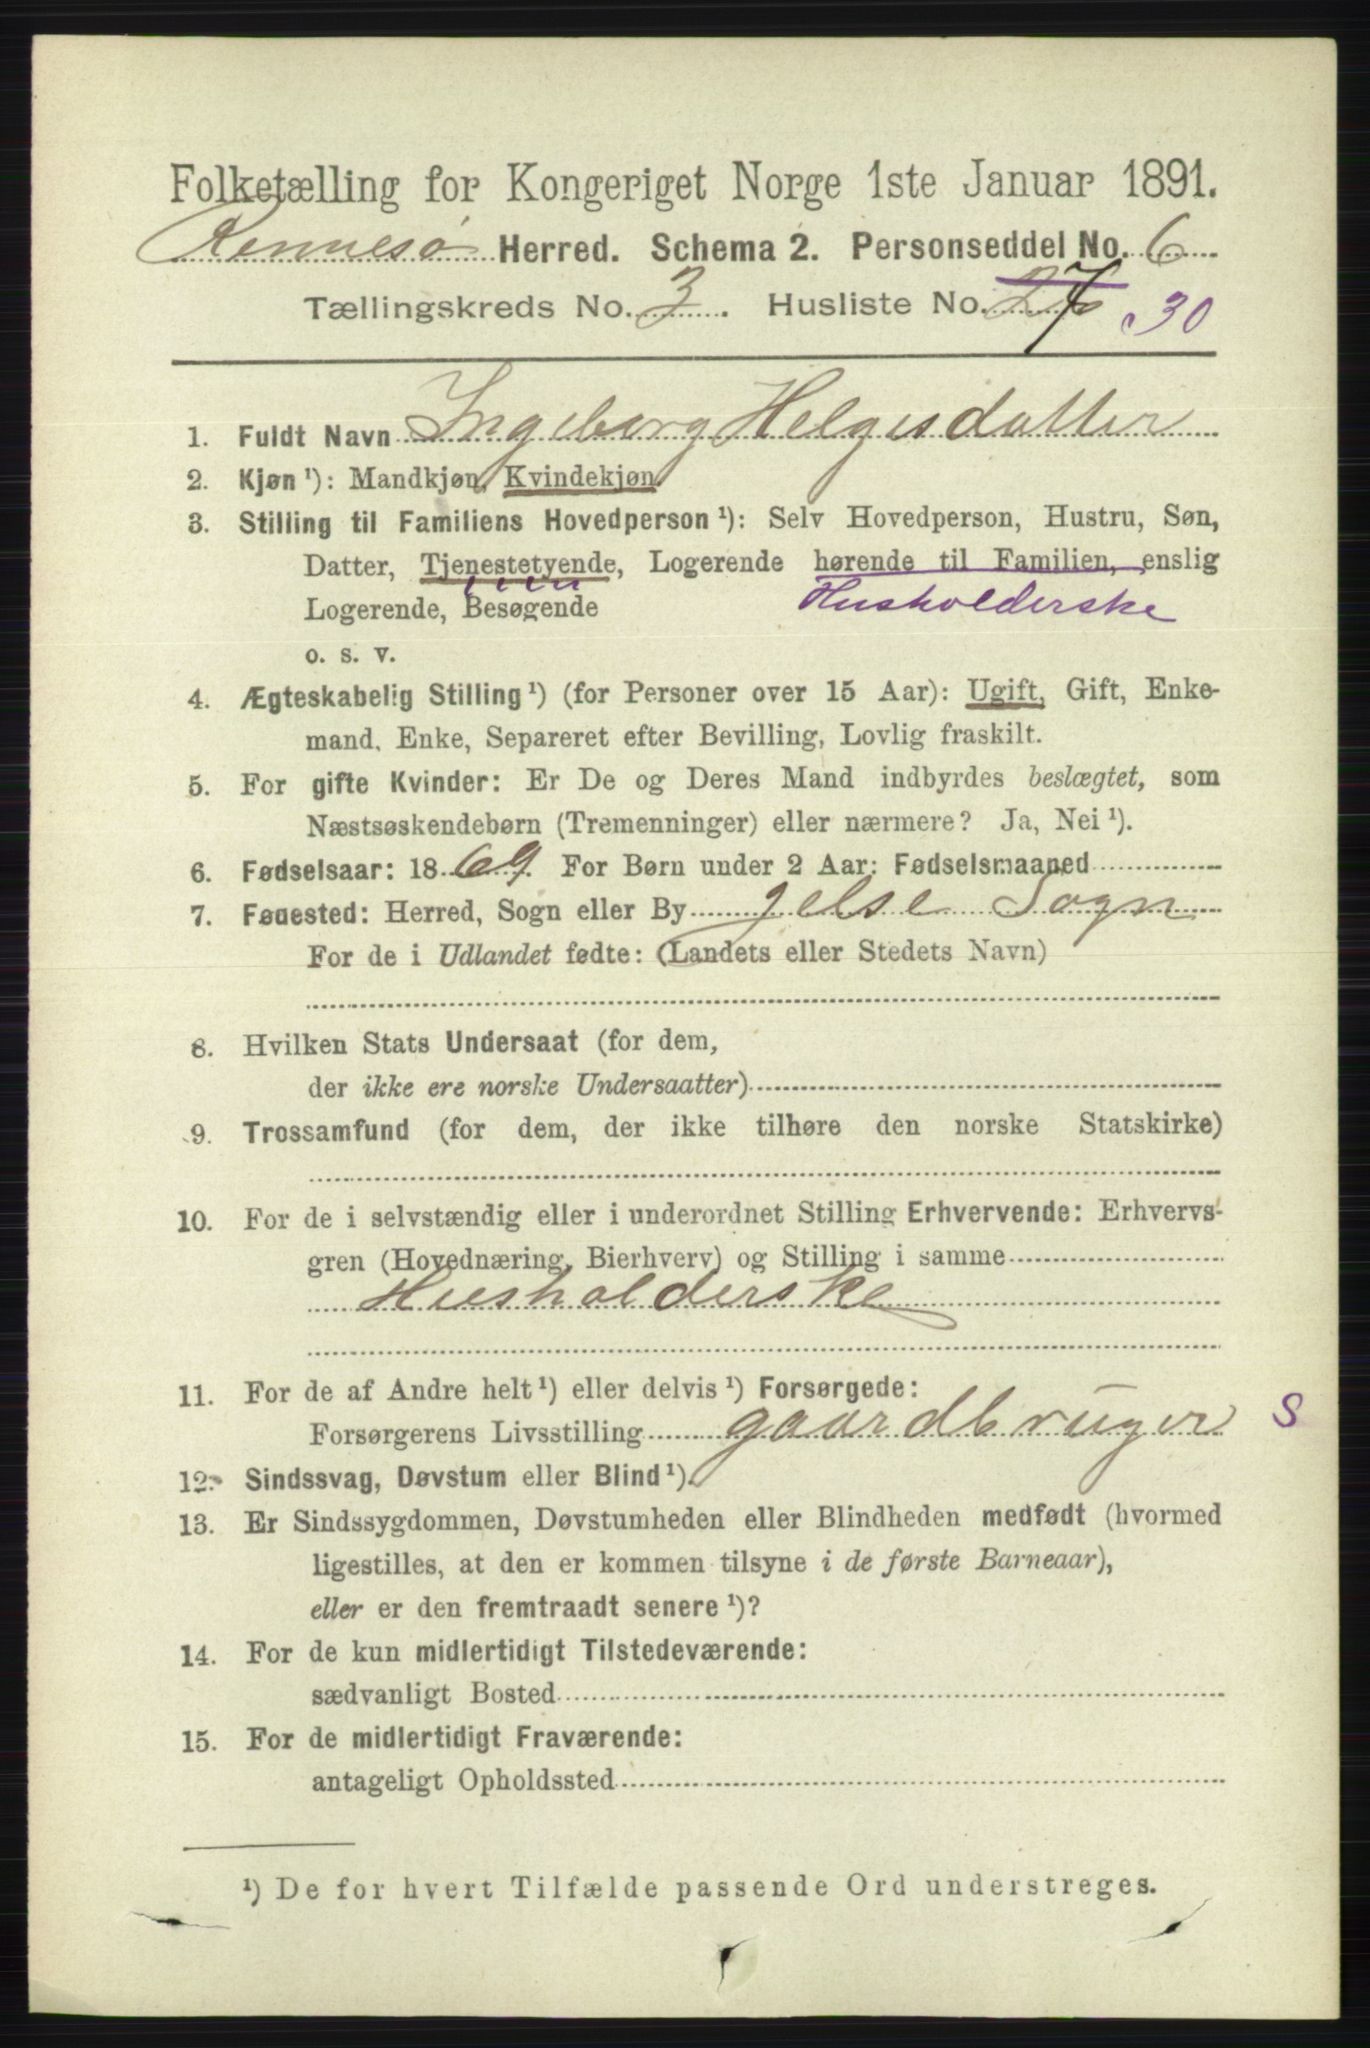 Folketælling for Kongeriget Norge 1ste Januar 1891.
Rennesø Herred. Schema 2. Personseddel No. 6
Tællingskreds No. 3. Husliste No. 30
1. Fuldt Navn Ingeborg Helgesdatter
2. Kjøn ¹): Mandkjøn, Kvindekjøn
3. Stilling til Familiens Hovedperson ¹): Selv Hovedperson, Hustru, Søn,
Datter, Tjenestetyende, Logerende hørende til Familien, enslig
Logerende, Besøgende Husholderske
o. s. v.
4. Ægteskabelig Stilling ¹) (for Personer over 15 Aar): Ugift, Gift, Enke-
mand, Enke, Separeret efter Bevilling, Lovlig fraskilt.
5. For gifte Kvinder: Er De og Deres Mand indbyrdes beslægtet, som
Næstsøskendebørn (Tremenninger) eller nærmere? Ja, Nei ¹).
6. Fødselsaar: 1869. For Børn under 2 Aar: Fødselsmaaned
7. Fødested: Herred, Sogn eller By Jelse Sogn
For de i Udlandet fødte: (Landets eller Stedets Navn)
8. Hvilken Stats Undersaat (for dem,
der ikke ere norske Undersaatter)
9. Trossamfund (for dem, der ikke tilhøre den norske Statskirke)
10. For de i selvstændig eller i underordnet Stilling Erhvervende: Erhvervs-
gren (Hovednæring, Bierhverv) og Stilling i samme
Husholderske
11. For de af Andre helt ¹) eller delvis ¹) Forsørgede:
Forsørgerens Livsstilling gaardbruger S
12. Sindssvag, Døvstum eller Blind ¹).
13. Er Sindssygdommen, Døvstumheden eller Blindheden medfødt (hvormed
ligestilles, at den er kommen tilsyne i de første Barneaar),
eller er den fremtraadt senere ¹)?
14. For de kun midlertidigt Tilstedeværende:
sædvanligt Bosted
15. For de midlertidigt Fraværende:
antageligt Opholdssted
¹) De for hvert Tilfælde passende Ord understreges.